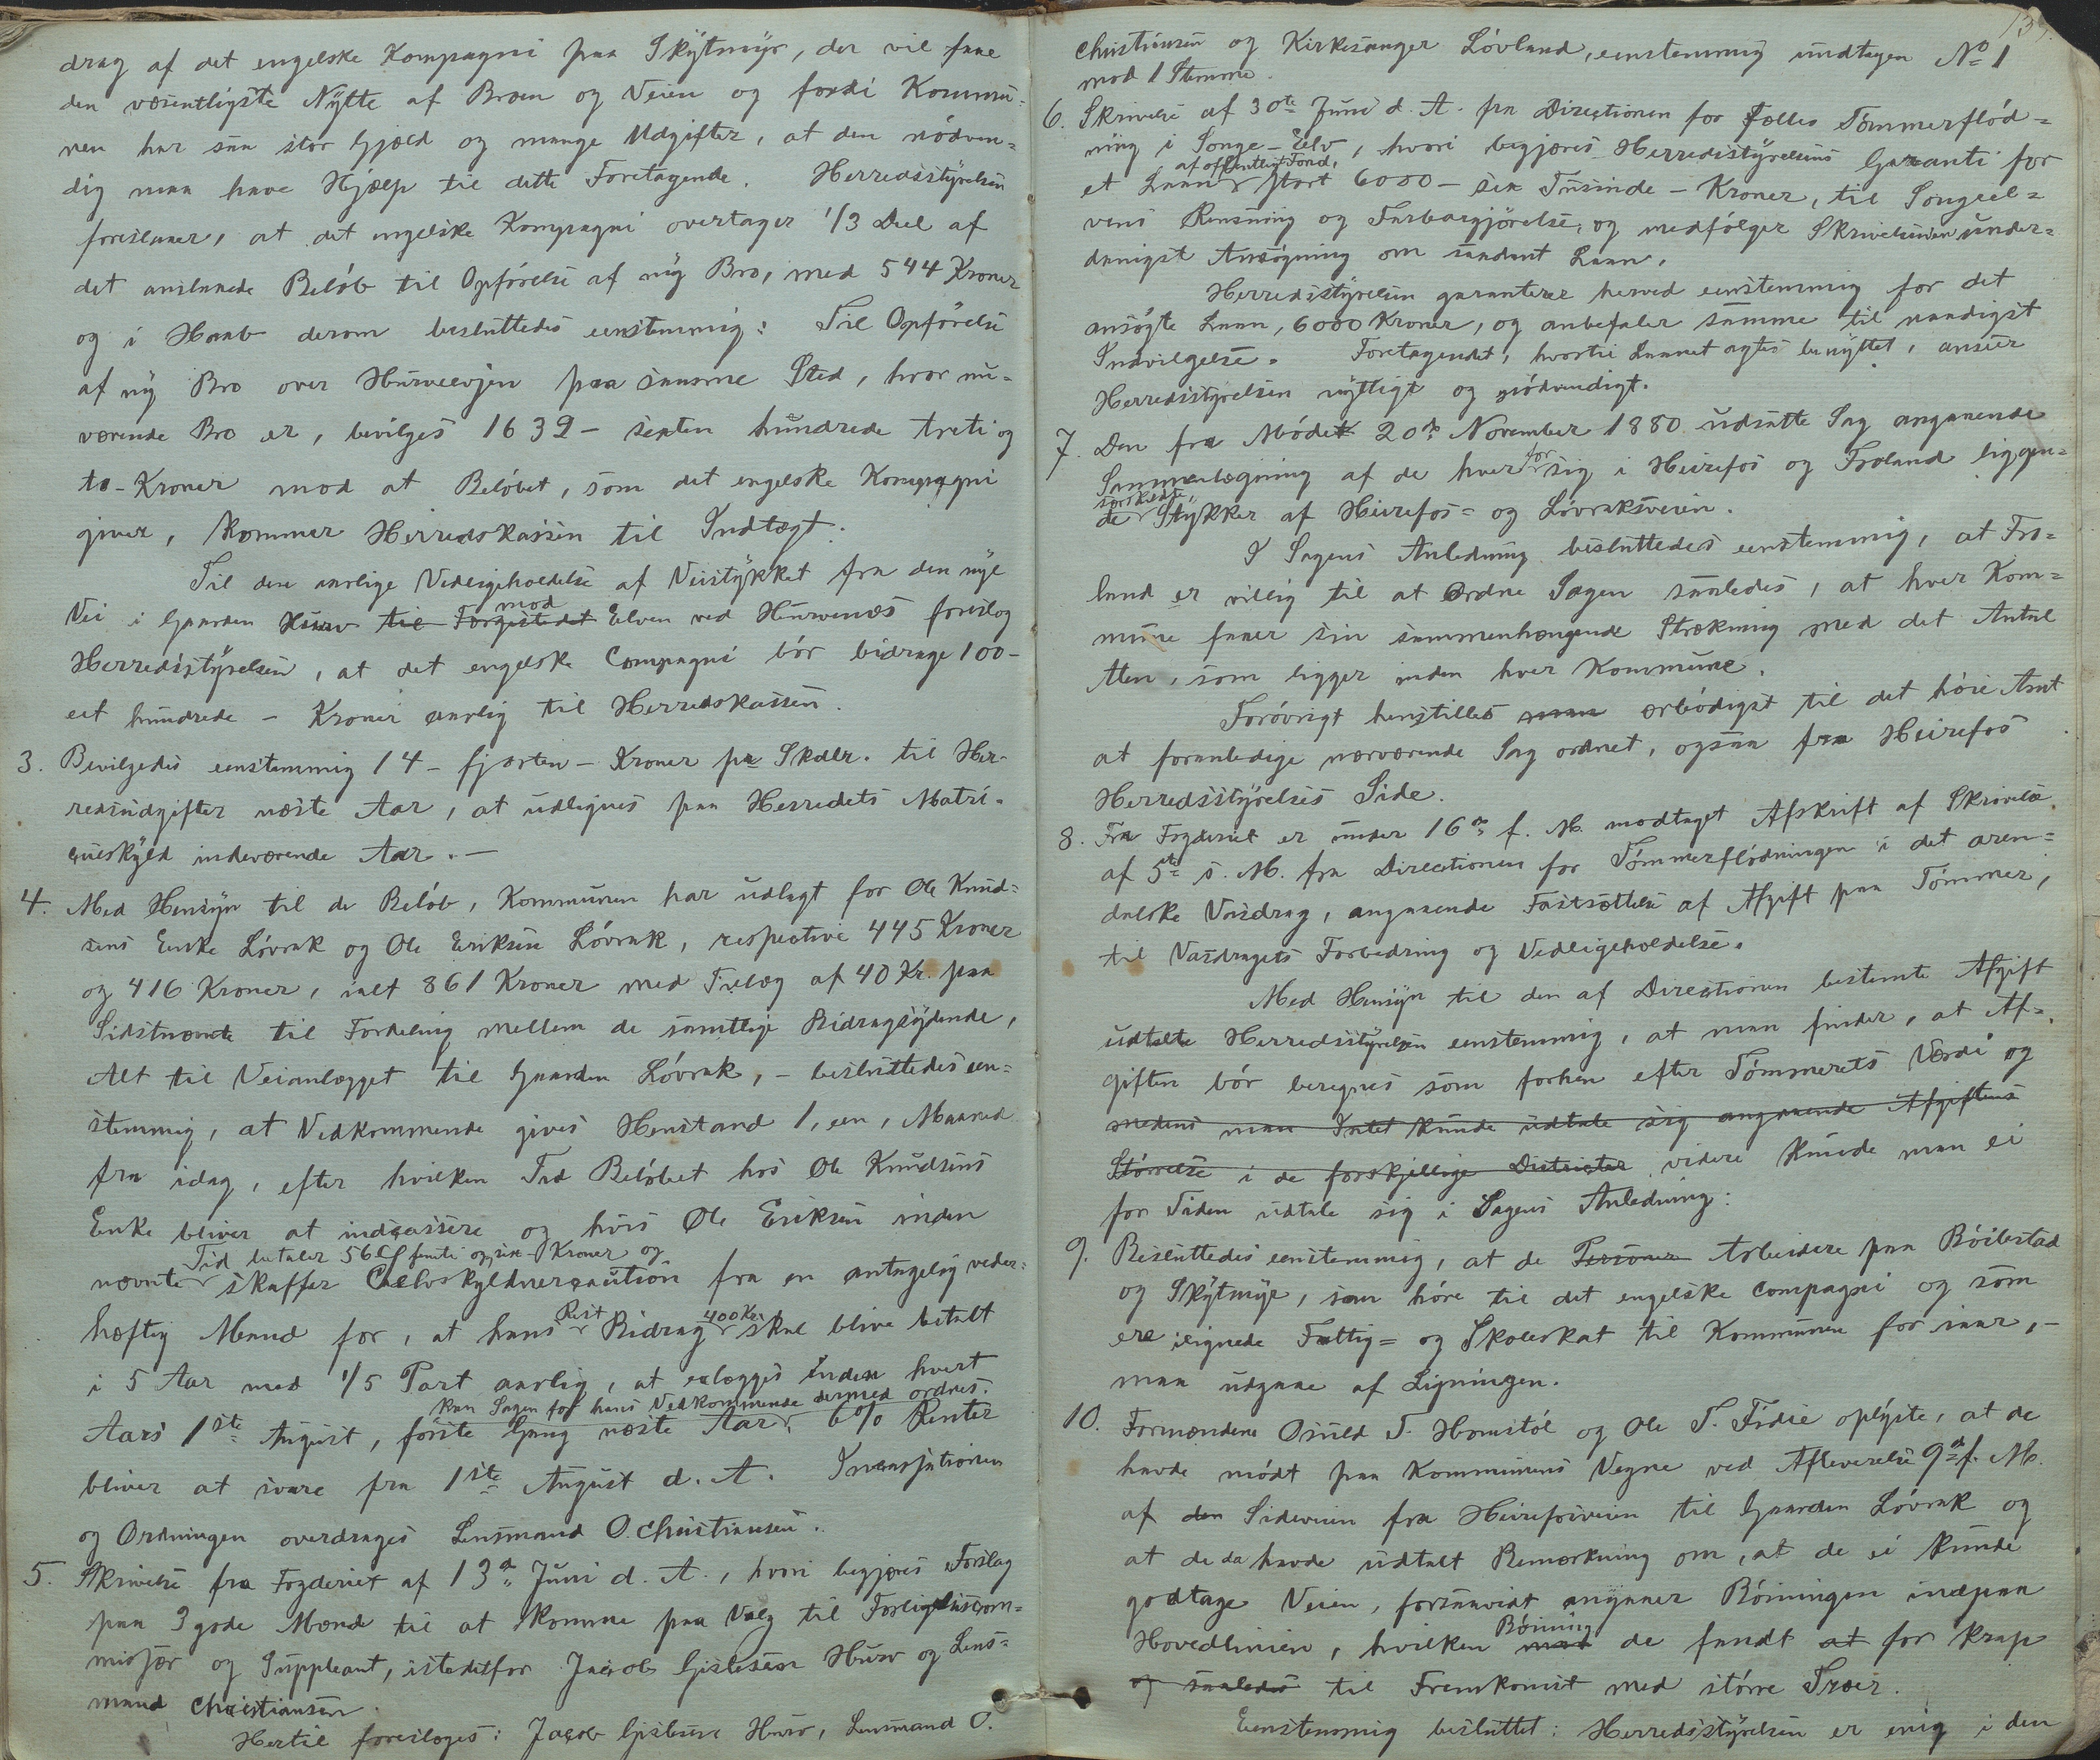 drag af det engelske Kompagni paa Skytmyr, der vil faae
den væsentligste Nytte af Broen og Veien og fordi Kommu=
nen har saa stor Gjæld og mange Udgifter, at den nödven=
dig maa have Hjælp til dette Foretagende. Herredsstyrelsen
foreslaaer, at det engelske Kompagni overtager 1/3 Deel af
det anslaaede Belöb til Opförelse af ny Bro, med 544 Kroner
og i Haab derom besluttedes eenstemmig: Til Opförelse
af ny Bro over Hurveelvjen paa samme Sted, hvor nu=
værende Bro er, bevilges 1632 - sexten hundrede treti og
to - Kroner mod at Belöbet, som det engelske Kompagni
giver, kommer Herredskassen til Indtægt.
Til den aarlige Vedligeholdelse af Veistykket fra den nye
Vei i Gaarden Hurv til Forgistedet mod Elven ved Hurvenæs foreslog
Herredsstyrelsen, at det engelske Compagni bör bidrage 100 -
eet hundrede - Kroner aarlig til Herredskassen.
3. Bevilgedes eenstemmig 14 - fjorten - Kroner pr Skdlr. til Her-
redsudgifter næste Aar, at udlignes paa Herredets Matri-
culskyld indeværende Aar. -
4. Med Hensyn til de Belöb, Kommunen har udlagt for Ole Knud=
sens Enke Lövrak og Ole Eriksen Lövrak, respective 445 Kroner
og 416 Kroner, ialt 861 Kroner med Tillæg af 40 Kr. paa
Sidstnævnte til Fordeling mellem de samtlige Bidragsydende,
Alt til Veianlægget til Gaarden Lövrak, - besluttedes een=
stemmig, at Vedkommende gives Henstand 1, een, Maaned
fra idag, efter hvilken Tid Belöbet hos Ole Knudsens
Enke bliver at indcassere og hvis Ole Eriksen inden
nævnte Tid betaler 56 femti og sex Kroner og skaffer Selvskyldnercaution fra en antagelig veder=
hæftig Mand for, at hans Rest Bidrag 400 Kr. skal blive betalt
i 5 Aar med 1/5 Part aarlig, at erlægges inden hvert
Aars 1ste August, förste Gang næste Aar, kan Sagen for hans Vedkommende dermed ordnes. 6% Renter
bliver at svare fra 1ste August d. A. Incassationen
og Ordningen overdrages Lensmand O. Christiansen.
5. Skrivelse fra Fogderiet af 13de Juni d. A., hvori begjæres Forslag
paa 3 gode Mænd til at komme paa Valg til Forligelsescom=
misær og Suppleant, istedetfor Jacob Gislesen Hurv og Lens=
mand Christiansen.
Hertil foresloges: Jacob Gislesen Hurv, Lensmand O.
139.
Christiansen og Kirkesanger Lövland, eenstemmig undtagen No 1
mod 1 Stemme.
6. Skrivelse af 30te Juni d. A. fra Directionen for Fælles Tömmerflöd=
ning i Songe-Elv, hvori begjæres Herredsstyrelsens Garanti for
et Laan af offentligt Fond, stort 6000 - sex Tusinde - Kroner, til Songeel=
vens Rensning og Farbargjörelse, og medfölger Skrivelsen under=
danigst Ansögning om saadant Laan.
Herredsstyrelsen garanterer herved eenstemmig for det
ansögte Laan, 6000 Kroner, og anbefaler samme til naadigst
Indvilgelse. Foretagendet, hvortil Laanet agtes benyttet, anseer
Herredsstyrelsen nyttigt og nödvendigt.
7. Den fra Mödet 20de November 1880 udsatte Sag angaaende
Sammenlægning af de hver for sig i Heirefos og Froland liggen=
de særskilte Stykker af Heirefos= og Lövraksveien.
I Sagens Anledning besluttedes eenstemmig, at Fro=
land er villig til at ordne Sagen saaledes, at hver Kom=
mune faaer sin sammenhængende Strækning med det Antal
Alen, som ligger inden hver Kommune.
Forövrigt henstilles man ærbödigst til det höie Amt
at foranledige nærværende Sag ordnet, ogsaa fra Heirefos
Herredsstyrelses Side.
8. Fra Fogderiet er under 16de f. M. modtaget Afskrift af Skrivelse
af 5te s. M. fra Directionen for Tömmerflödningen i det aren=
dalske Vasdrag, angaaende Fastsættelse af Afgift paa Tömmer,
til Vasdragets Forbedring og Vedligeholdelse.
Med Hensyn til den af Directionen bestemte Afgift
udtalte Herredsstyrelsen eenstemmig, at man finder, at Af=
giften bör beregnes som forhen efter Tömmerets Værdi og
medens man Intet kunde udtale sig angaaende Afgiftens
Störrelse i de forskjellige Districter videre kunde man ei
for Tiden udtale sig i Sagens Anledning:
9. Besluttedes eenstemmig, at de Personer Arbeidere paa Böilestad
og Skytmyr, som höre til det engelske Compagni og som
ere ilignede Fattig= og Skoleskat til Kommunen for iaar, -
maa udgaae af Ligningen.
10. Formændene Osuld T. Homstöl og Ole T. Fidie oplyste, at de
havde mödt paa Kommunens Vegne ved Afleverelse 9de f. M.
af den Sideveien fra Heirefosveien til Gaarden Lövrak og
at de da havde udtalt Bemærkning om, at de ei kunde
godtage Veien, forsaavidt angaaer Böiningen indpaa
Hovedlinien, hvilken Böining de fandt at for knap
og saaledes til Fremkomst med större Træer.
Eenstemmig besluttet: Herredsstyrelsen er enig i den